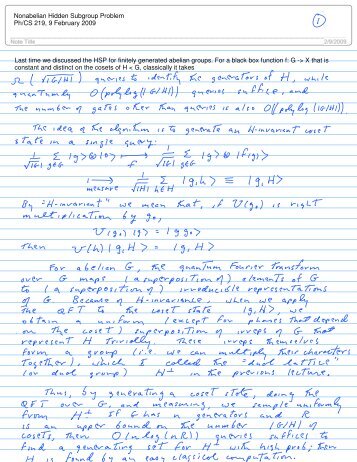 Nonabelian Hidden Subgroup Problem
Ph/CS 219, 9 February 2009
①
Note Title
2/9/2009
Last time we discussed the HSP for finitely generated abelian groups. For a black box function f: G -> X that is
constant and distinct on the cosets of H < G, classically it takes
Ω(√|G/H|) queries to identify the generators of H, while
quantumly O(polylog(|G/H|)) queries suffice, and
the number of gates other than queries is also O((polylog |G|)).
The idea of the algorithm is to generate an H-invariant coset
state in a single query:
1/√|G| Σ g∈G |g>⊗|0> → f 1/√|G| Σ g∈G |g>⊗|f(g)>
→ measure 1/√|H| Σ h∈H |g,h> ≡ |g,H>
By "H-invariant" we mean that, if U(g₀) is right
multiplication by g₀,
U(g₀)|g> = |g g₀>
Then U(h)|g,H> = |g,H>
For abelian G, the quantum Fourier transform
over G maps (a superposition of) elements of G
to (a superposition of) irreducible representations
of G. Because of H-invariance, when we apply
the QFT to the coset state |g,H>, we
obtain a uniform (except for phases that depend
on the coset) superposition of irreps of G that
represent H trivially. These irreps themselves
form a group (i.e. we can multiply their characters
together), which I called the "dual lattice"
(or dual group) H⊥ in the previous lecture.
Thus, by generating a coset state, doing the
QFT over G, and measuring, we sample uniformly
from H⊥. If G has n generators and R
is an upper bound on the number |G/H| of
cosets, then O(n log(nR)) queries suffices to
find a generating set for H⊥ with high prob; then
H is found by an easy classical computation.